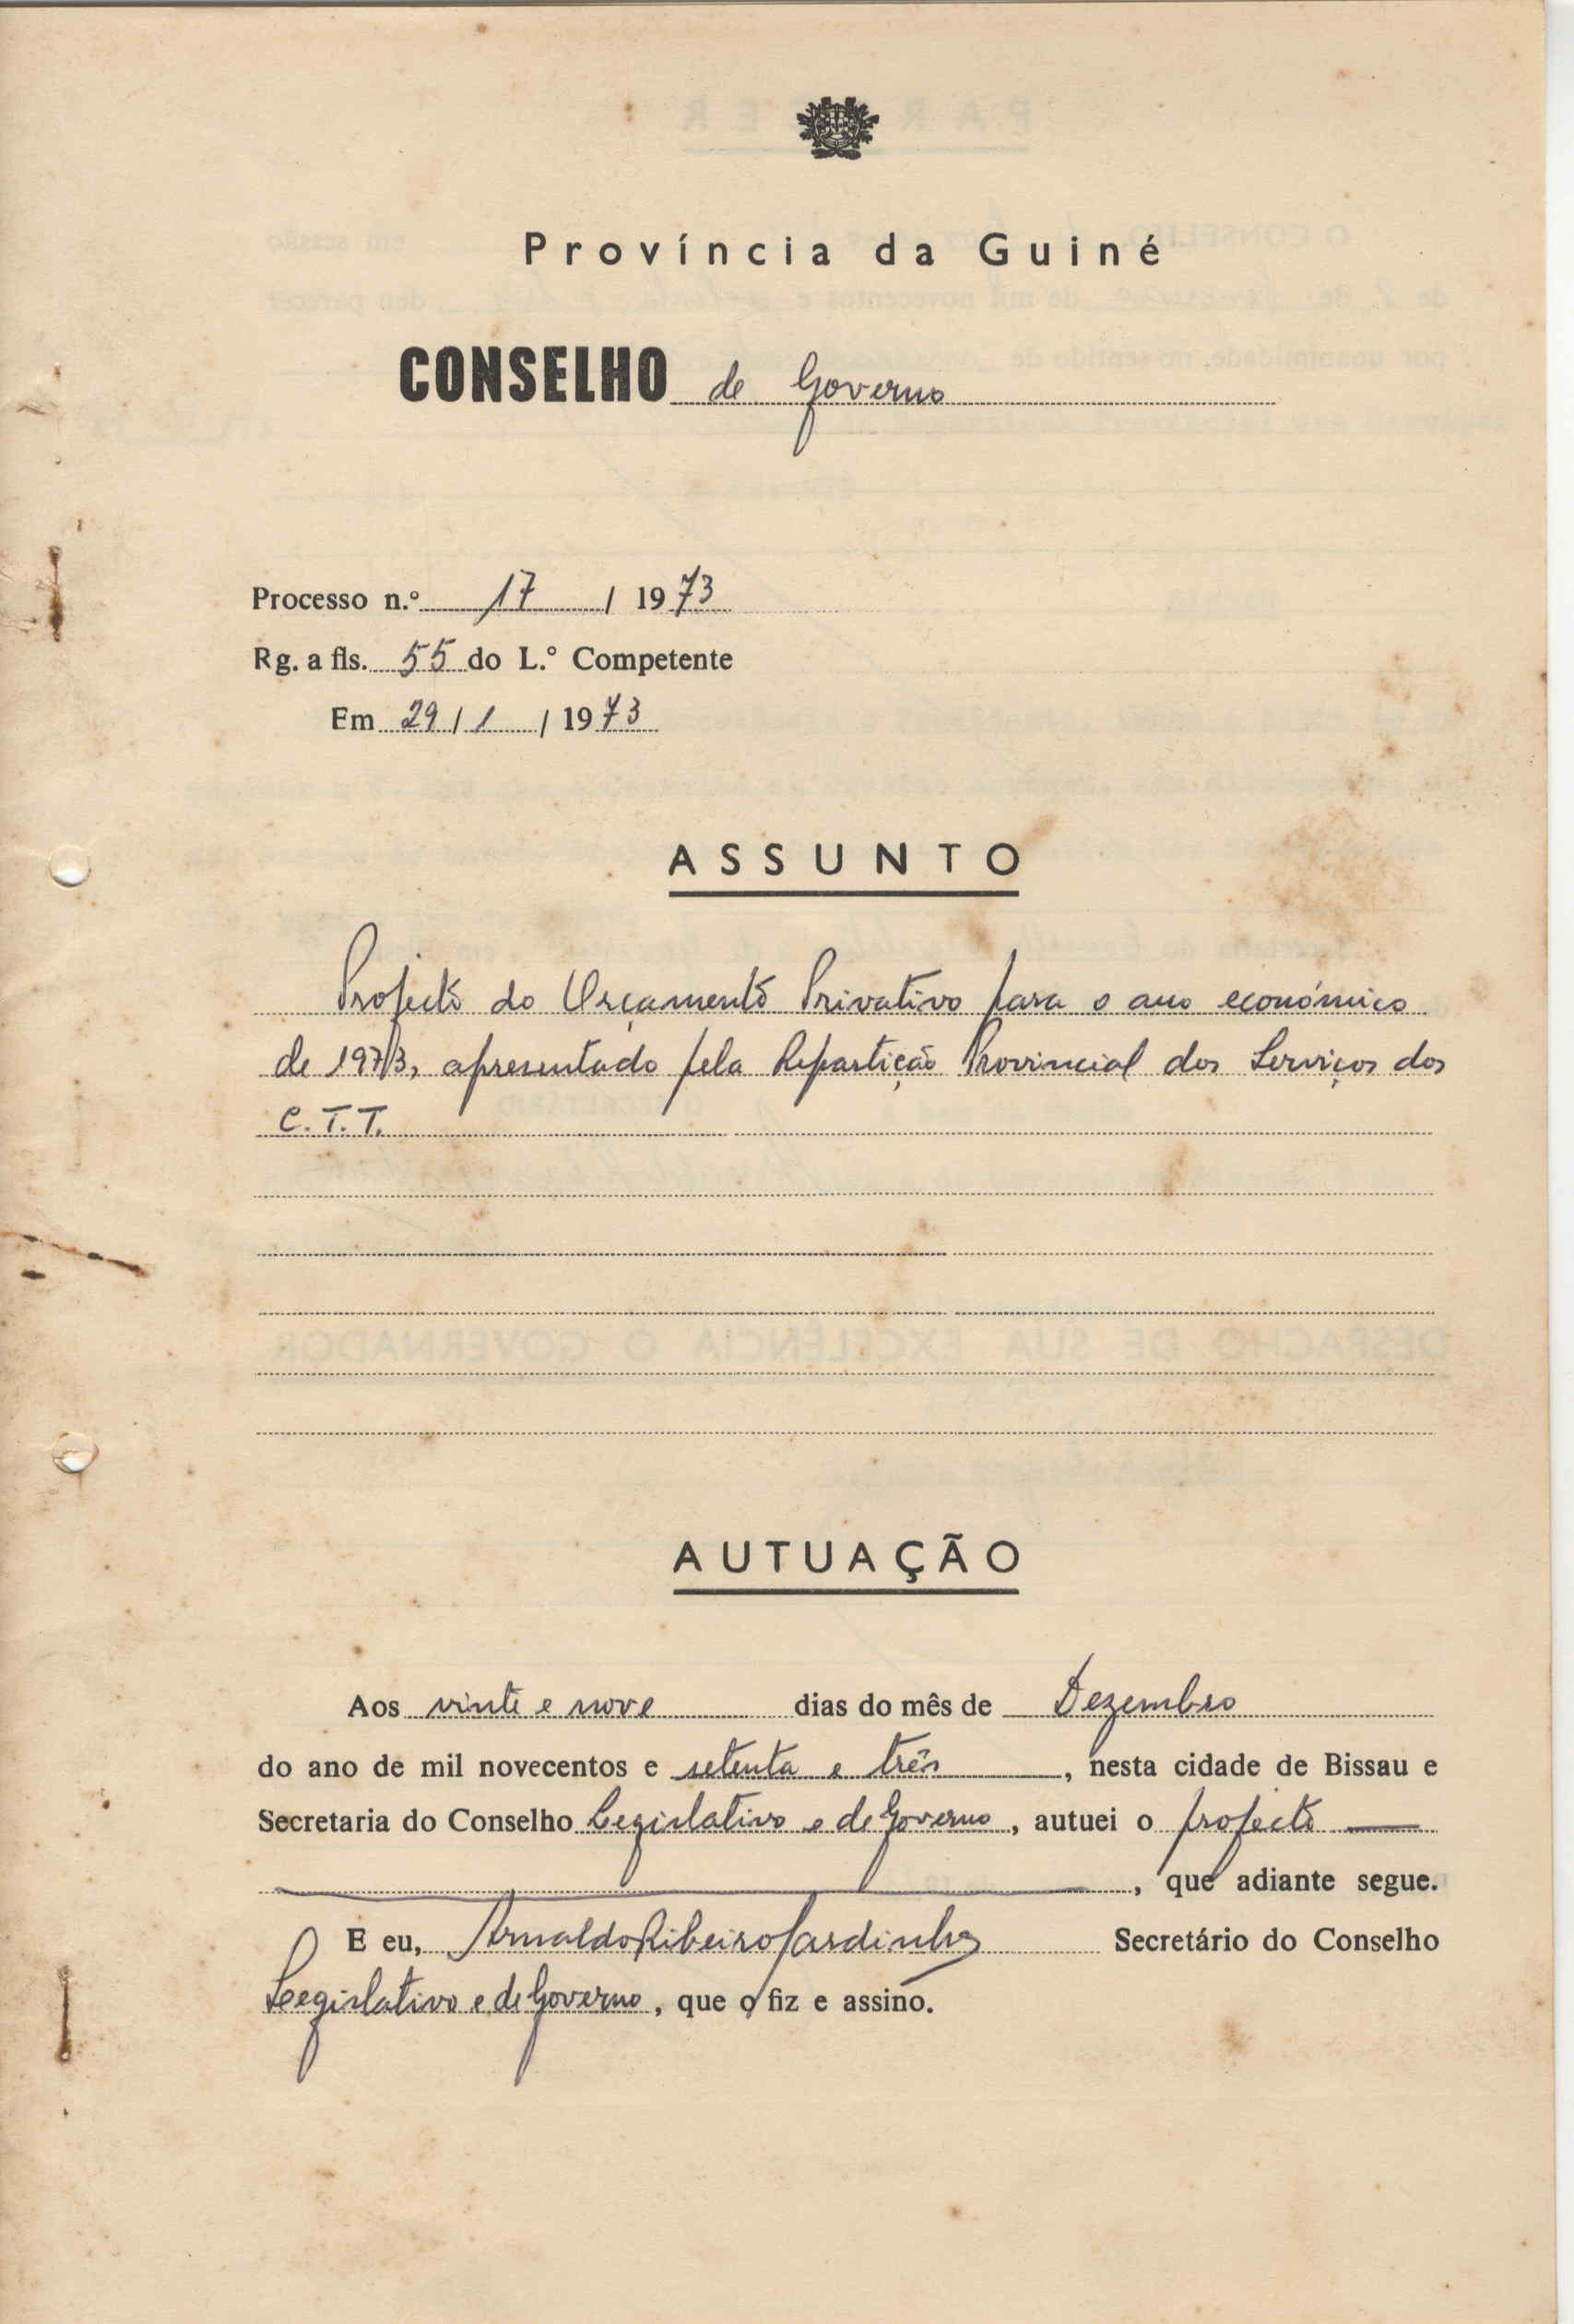 Província da Guiné
CONSELHO de Governo
Processo n.º 17 / 1973
Rg. a fls. 55 do L.º Competente
Em 29 / 1 / 1973
ASSUNTO
Projecto do Orçamento Privativo para o ano económico
de 1973, apresentado pela Repartição Provincial dos Serviços dos
C.T.T.
AUTUAÇÃO
Aos vinte e nove dias do mês de Dezembro
do ano de mil novecentos e setenta e três, nesta cidade de Bissau e
Secretaria do Conselho Legislativo e de Governo, autuei o projecto —
, que adiante segue.
E eu, Arnaldo Ribeiro Sardinha Secretário do Conselho
Legislativo e de Governo, que o fiz e assino.